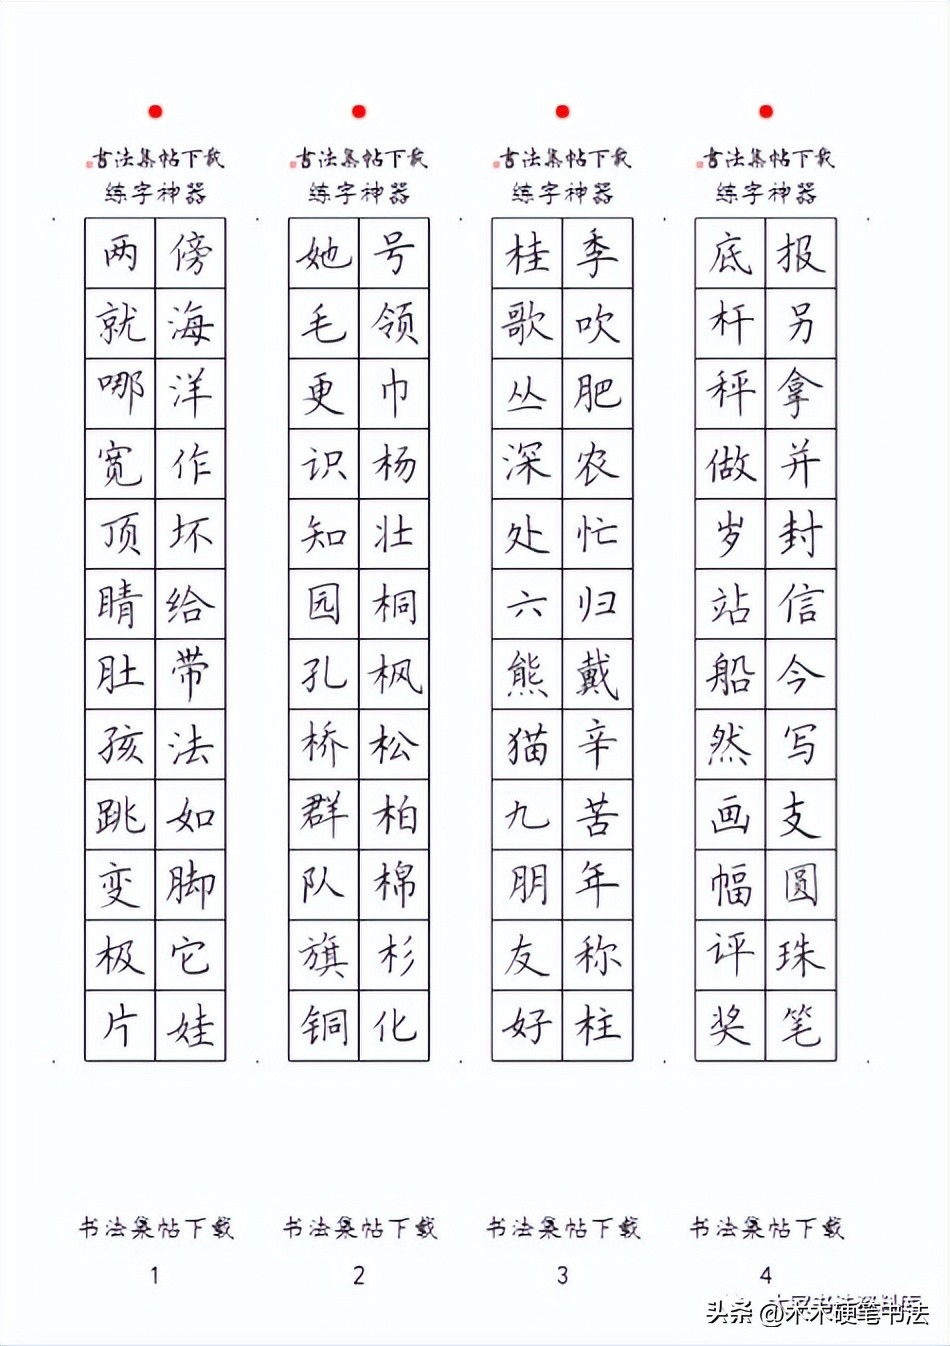 书法集帖下载 书法集帖下载 书法集帖下载 书法集帖下载
练字神器 练字神器 练字神器 练字神器
两 傍 她 号 桂 季 底 报
就 海 毛 领 歌 吹 杆 另
哪 洋 更 巾 丛 肥 秤 拿
宽 作 识 杨 深 农 做 并
顶 坏 知 壮 处 忙 岁 封
睛 给 园 桐 六 归 站 信
肚 带 孔 枫 熊 戴 船 今
孩 法 桥 松 猫 辛 然 写
跳 如 群 柏 九 苦 画 支
变 脚 队 棉 朋 年 幅 圆
极 它 旗 杉 友 称 评 珠
片 娃 铜 化 好 柱 奖 笔
书法集帖下载 书法集帖下载 书法集帖下载 书法集帖下载
1 2 3 4
头条 @木木硬笔书法